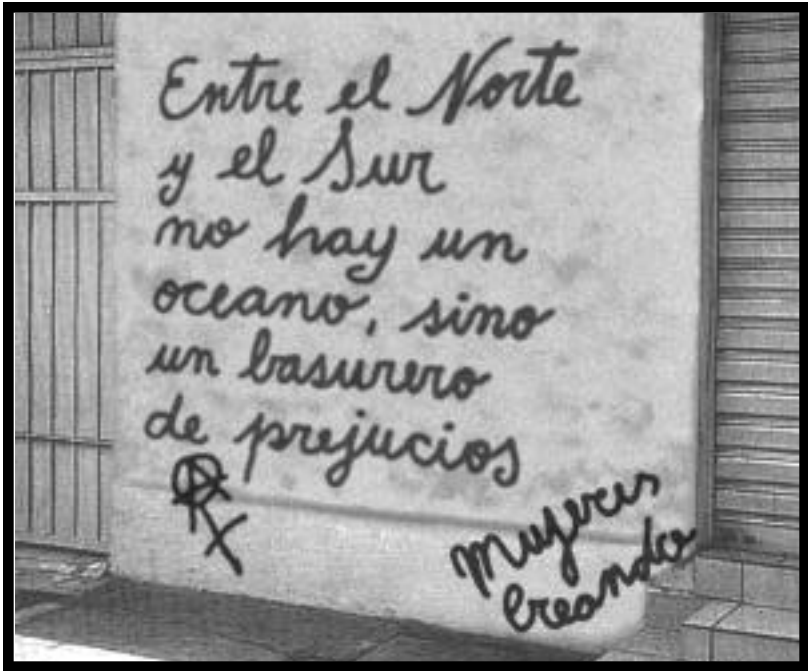 Entre el Norte
y el Sur
no hay un
oceano, sino
un basurero
de prejucios
Mujeres
Creando